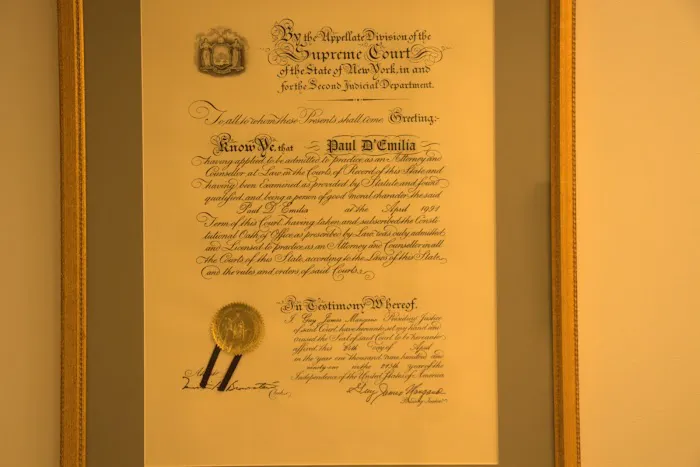 By the Appellate Division of the
Supreme Court
of the State of New York, in and
for the Second Judicial Department.
To all to whom these Presents shall come Greeting:
Know Ye, that Paul D'Emilia
having applied to be admitted to practice as an Attorney and
Counsellor at Law in the Courts of Record of this State and
having been examined as provided by Statute and found
qualified, and being a person of good moral character, the said
Paul D'Emilia at the April 1991
Term of this Court, having taken and subscribed the Consti-
tutional Oath of Office as prescribed by Law was duly admitted
and Licensed to practice as an Attorney and Counsellor in all
the Courts of this State, according to the Laws of this State
and the rules and orders of said Courts.
In Testimony Whereof,
I Guy James Mangano Presiding Justice
of said Court, have hereunto set my hand and
caused the Seal of said Court to be hereunto
affixed, this day of April
in the year one thousand, nine hundred and
ninety-one and in the 215th year of the
Independence of the United States of America
Attest
Clerk
Guy James Mangano
Presiding Justice